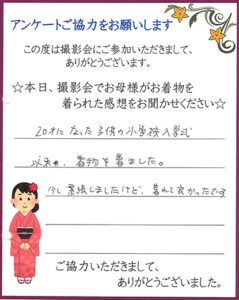 アンケートご協力をお願いします
この度は撮影会にご参加いただきまして、
ありがとうございます。
☆本日、撮影会でお母様がお着物を
着られた感想をお聞かせください☆
20才になった子供の小学校入学式
以来の、着物を着ました。
少し緊張しましたけど、着れて良かったです
ご協力いただきまして、
ありがとうございました。